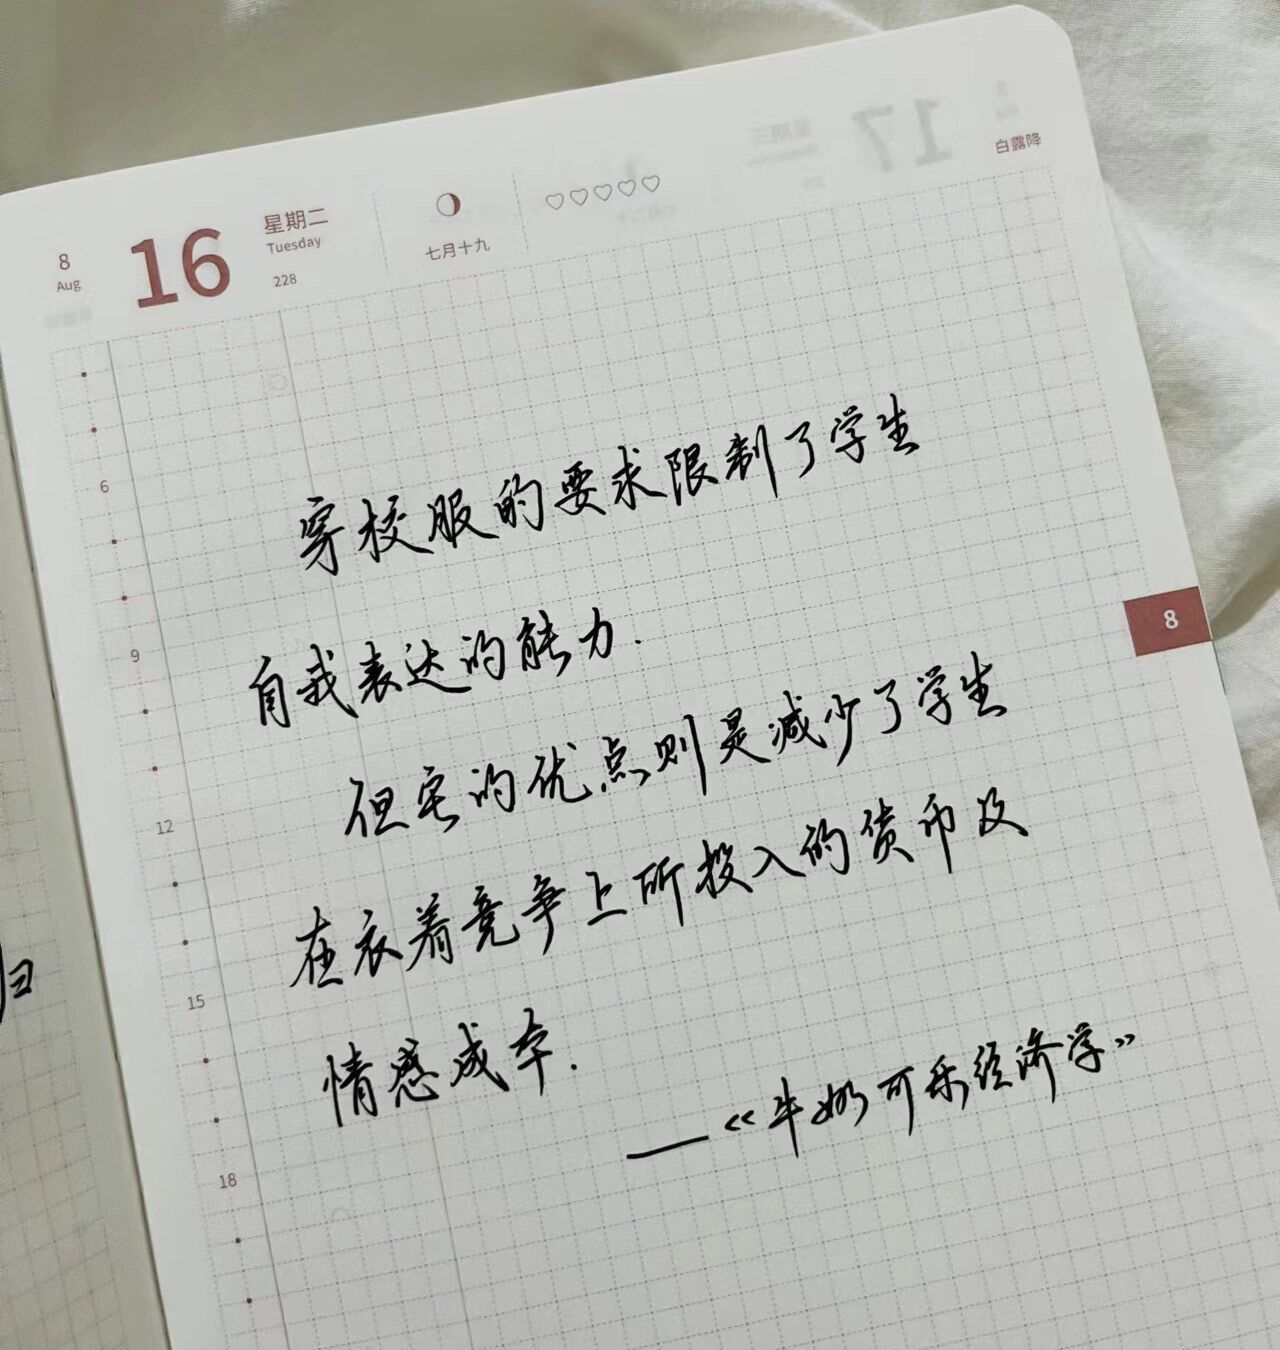 8
Aug
16
星期二
Tuesday
228
七月十九
♡♡♡♡♡
白露降
穿校服的要求限制了学生
自我表达的能力.
但它的优点则是减少了学生
在衣着竞争上所投入的货币及
情感成本.
——《牛奶可乐经济学》
6
9
12
15
18
8